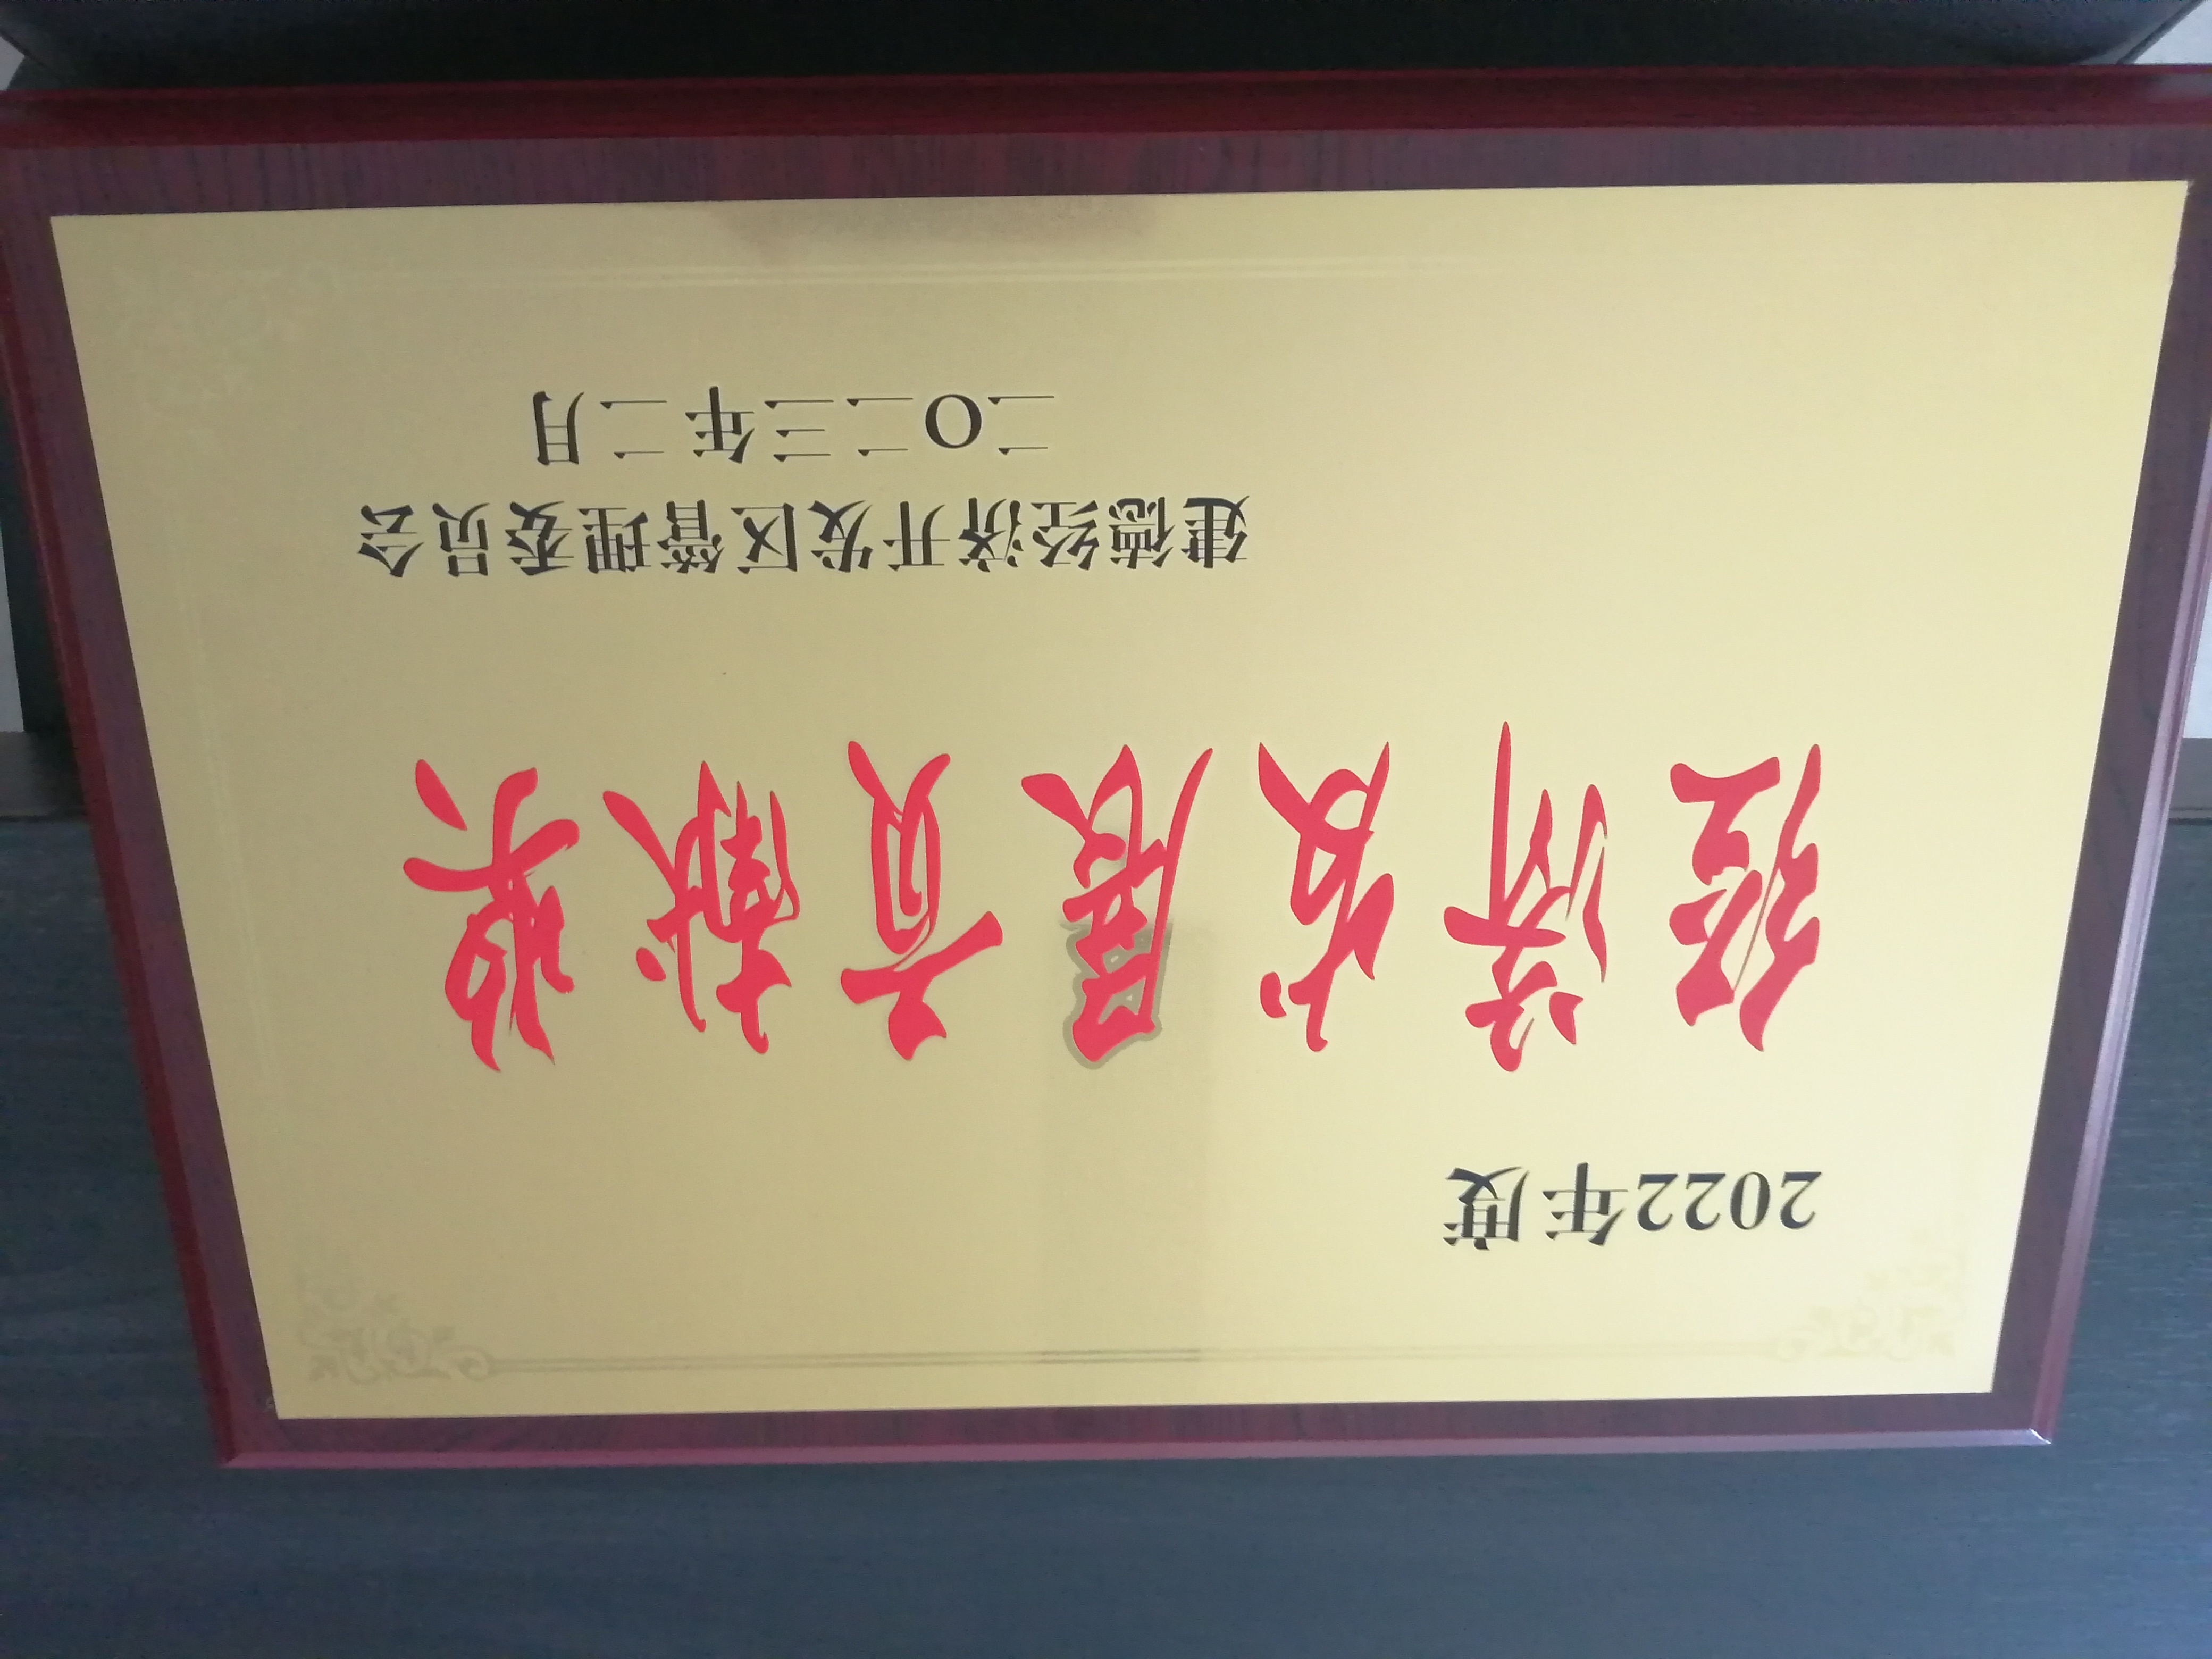 2022年度
经济发展贡献奖
建德经济开发区管理委员会
二〇二三年二月